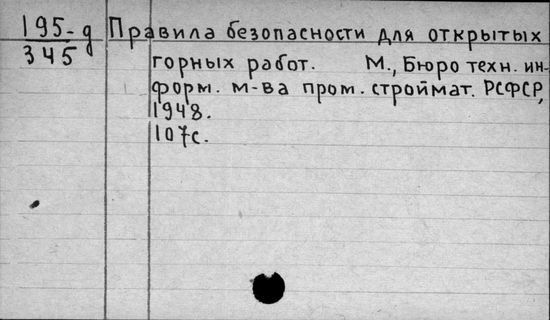 195-д
345
Правила безопасности для открытых
горных работ. М., Бюро техн. ин-
форм. м-ва пром. строймат. РСФСР,
1948.
107с.